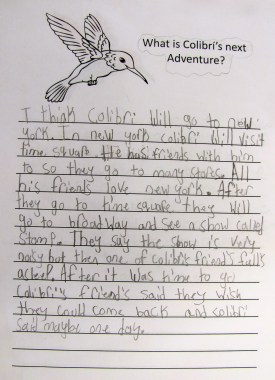 What is Colibri's next
Adventure?
I think Colibri will go to new
york. In new york colibri will visit
time square. He has friends with him
to so they go to many stores. All
his friends love new york. After
they go to time square they will
go to broadway and see a show called
Stomp. They say the show is very
noisy but then one of colibri's friend's falls
asleep. After it was time to go
Colibri's friend's said they wish
they could come back and colibri
said maybe one day.